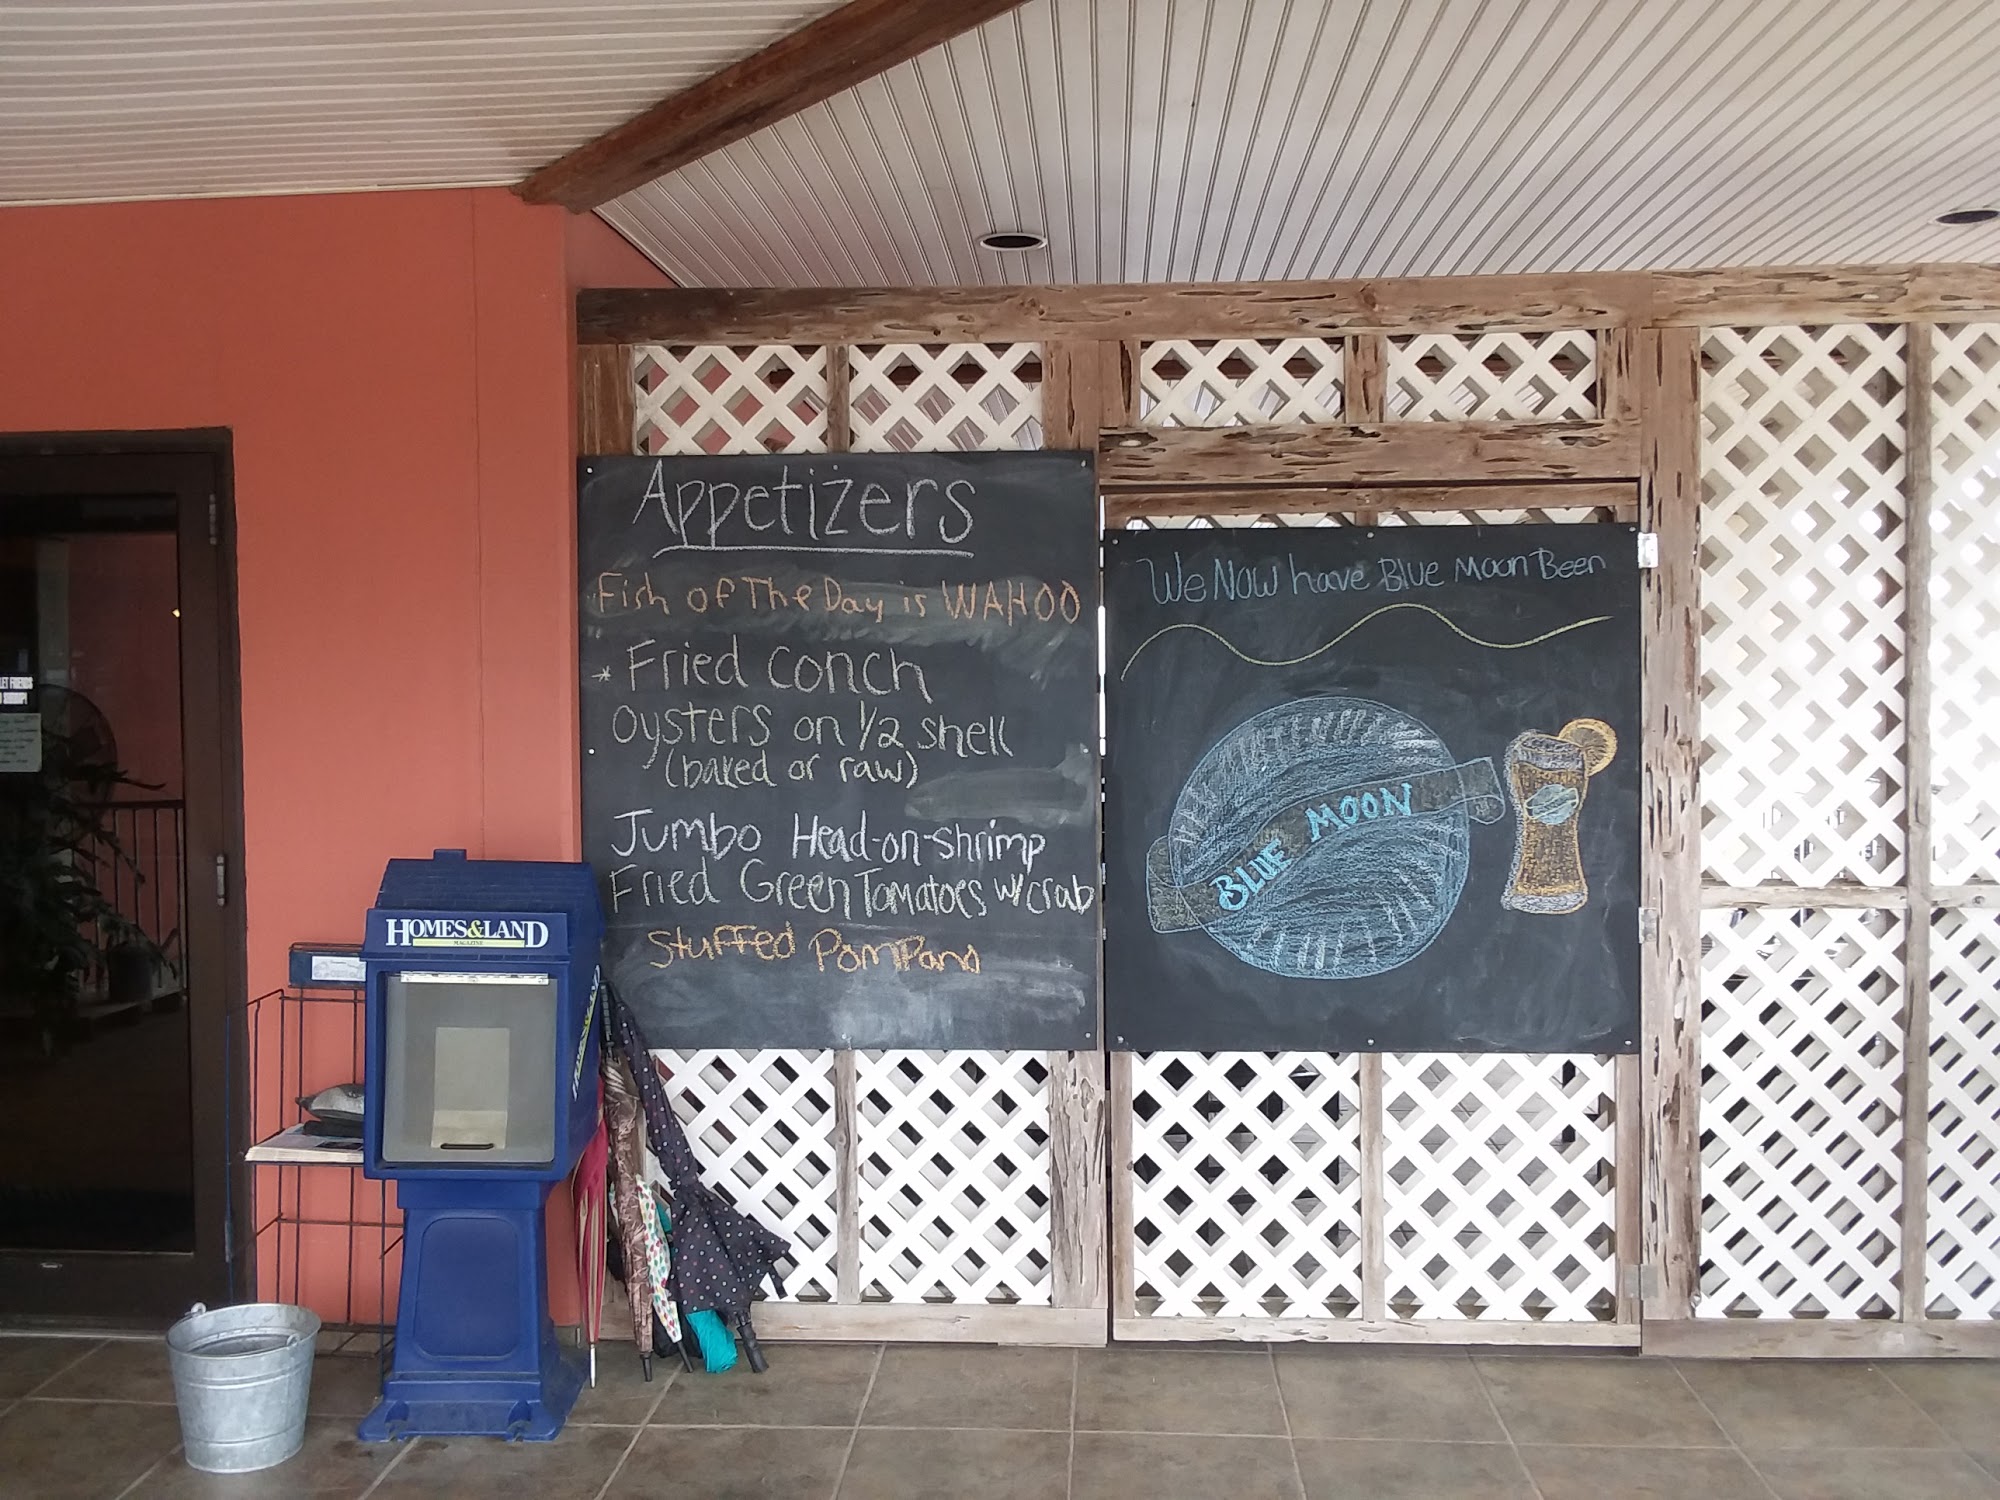 Appetizers
Fish of The Day is WAHOO
* Fried Conch
Oysters on 1/2 shell
(baked or raw)
Jumbo Head-on-shrimp
Fried Green Tomatoes w/ crab
Stuffed Pompano
We Now have Blue Moon Beer
BLUE MOON
HOMES&LAND
MAGAZINE
HOMES&LAND
LET FRIENDS